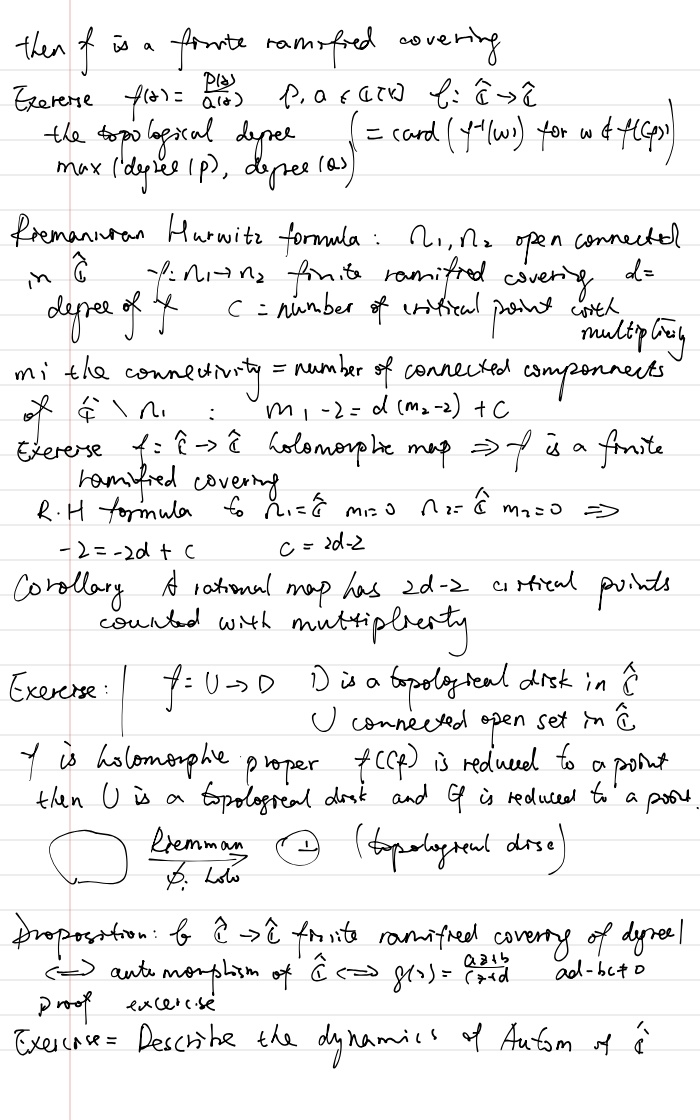 then f is a finite ramified covering
Exercise f(z) = P(z)/Q(z) P, Q ∈ ℂ[X] f: Ĉ → Ĉ
the topological degree (= card (f⁻¹(w)) for w ∉ f(Cf))
max (degree(P), degree(Q))
Riemannian Hurwitz formula: Ω1, Ω2 open connected
in Ĉ f: Ω1 → Ω2 finite ramified covering d =
degree of f C = number of critical point with
multiplicity
mi the connectivity = number of connected components
of Ĉ \ Ω1 : m1 - 2 = d (m2 - 2) + C
Exercise f = Ĉ → Ĉ holomorphic map ⇒ f is a finite
ramified covering
R.H formula to Ω1 = Ĉ m1 = 0 Ω2 = Ĉ m2 = 0 ⇒
-2 = -2d + C C = 2d-2
Corollary A rational map has 2d-2 critical points
counted with multiplicity
Exercise: f = U → D D is a topological disk in Ĉ
U connected open set in Ĉ
f is holomorphic proper f(Cf) is reduced to a point
then U is a topological disk and Cf is reduced to a point.
Riemman (topological disc)
φ: holo
Proposition: Ĉ → Ĉ finite ramified covering of degree 1
⟺ automorphism of Ĉ ⟺ g(z) = az+b/cz+d ad-bc≠0
proof excercise
Exercise = Describe the dynamics of Autom of Ĉ